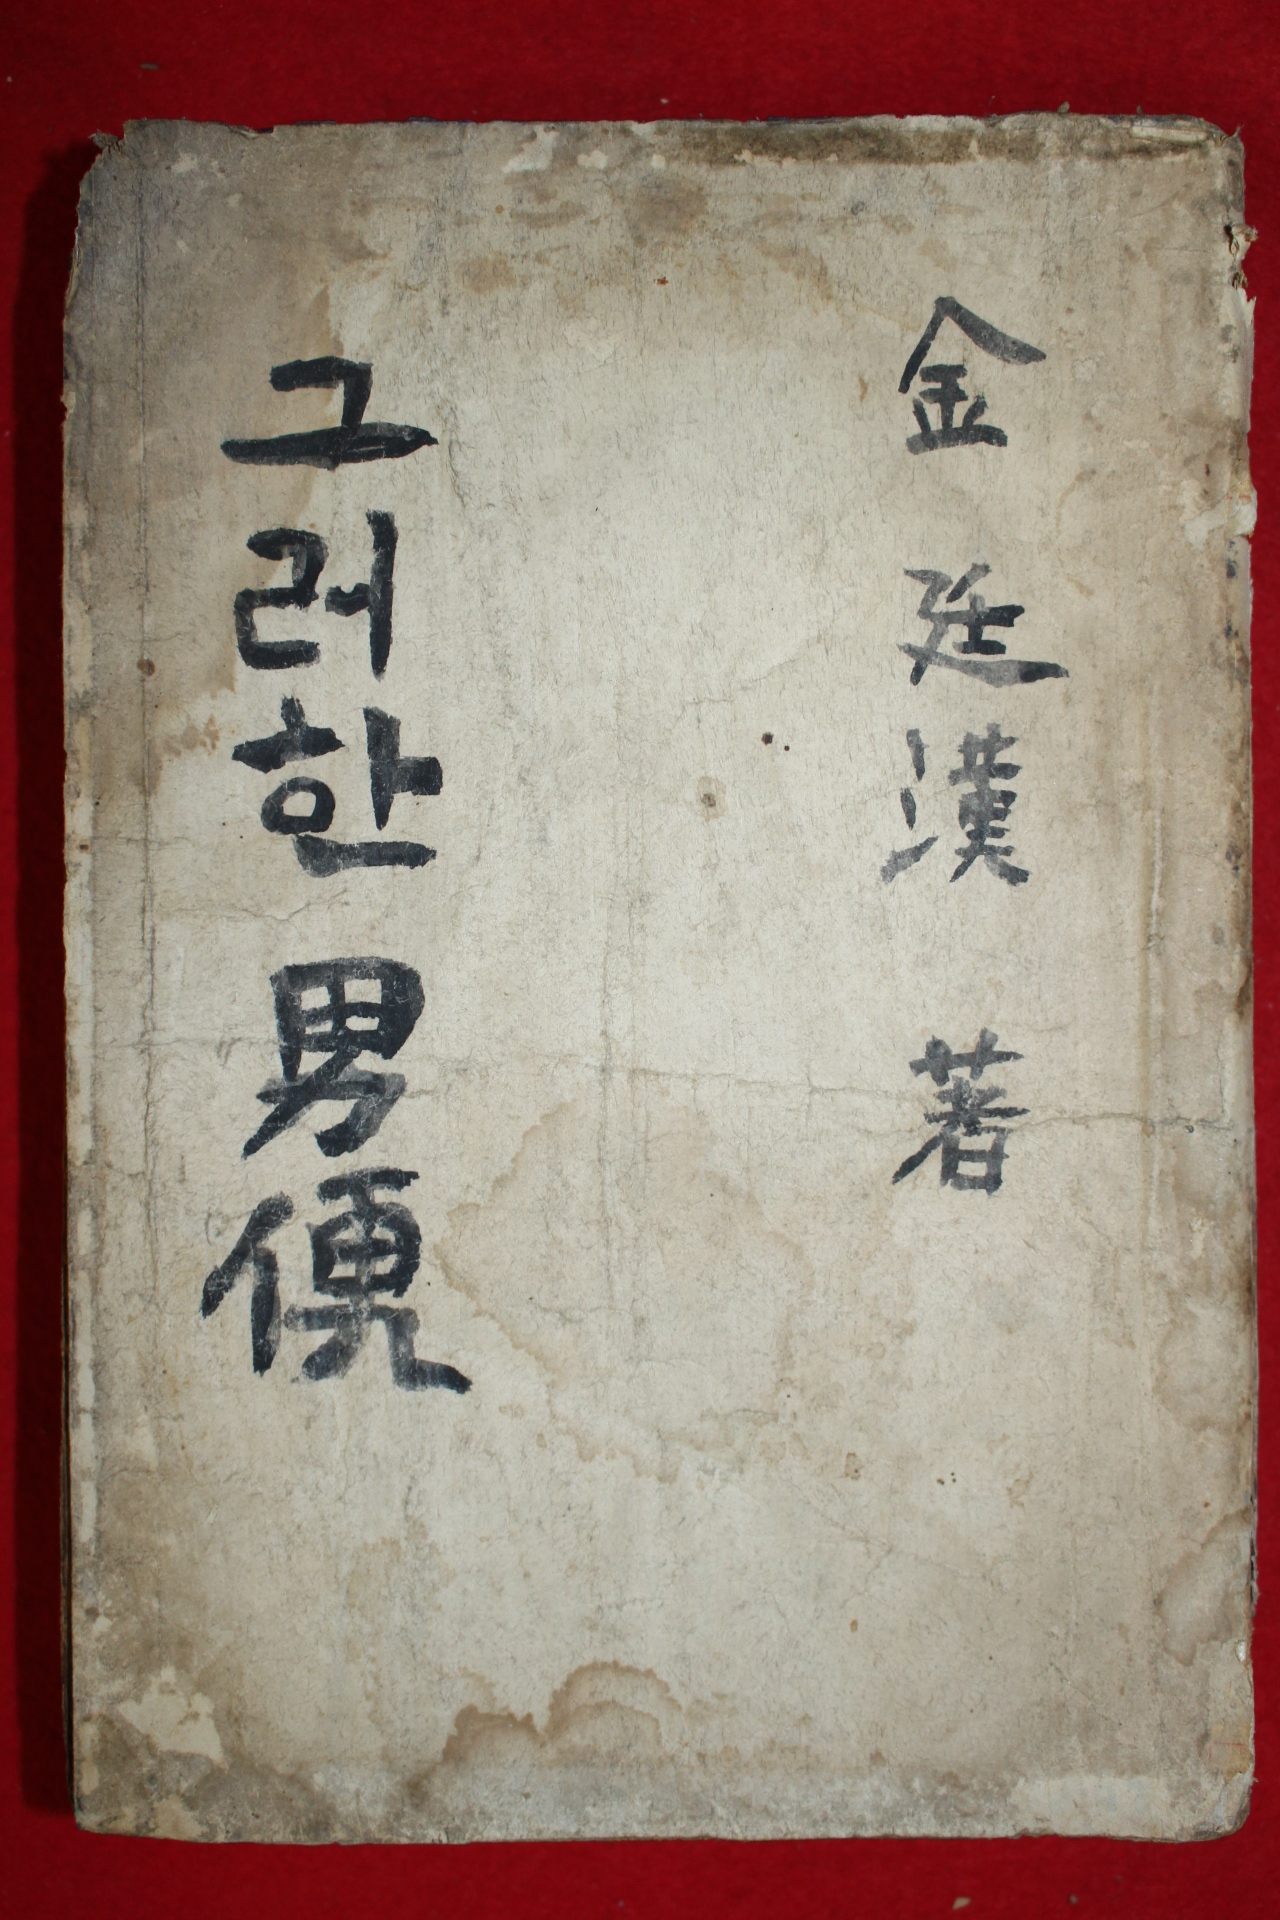 金廷漢 著
그러한 男便